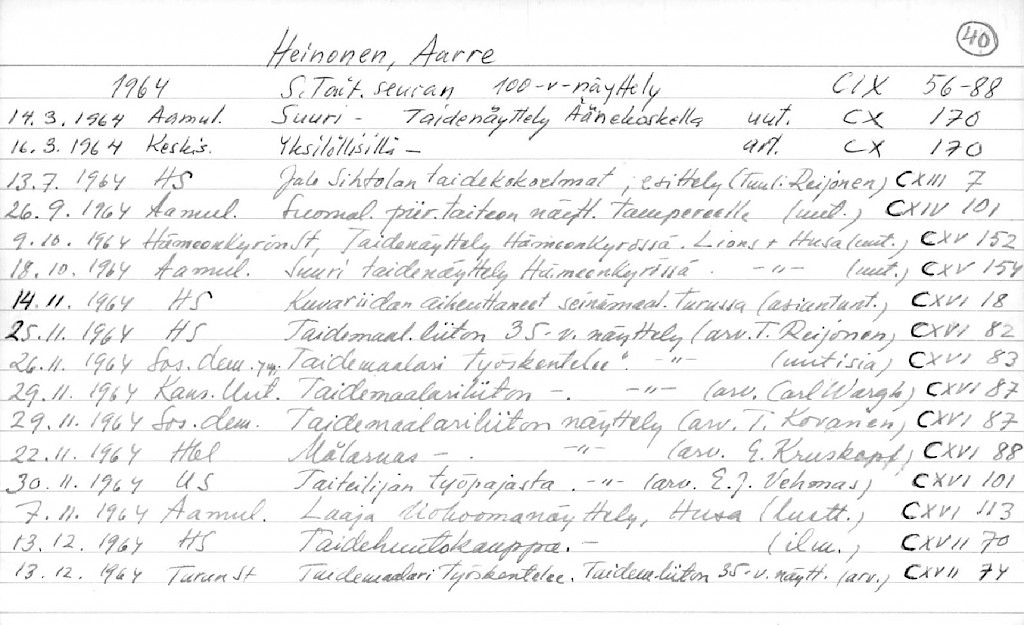 40
Heinonen, Aarre
1964 S. Tait. seuran 100-v-näyttely CIX 56-88
14.3.1964 Aamul. Suuri - Taidenäyttely Äänekoskella uut. CX 170
16.3.1964 Keskis. Yksilöllisillä - art. CX 170
13.7.1964 HS Jalo Sihtolan taidekokoelmat, esittely (Tuuli Reijonen) CXIII 7
26.9.1964 Aamul. Suomal. piir. taiteen näytt. Tampereella (uut.) CXIV 101
9.10.1964 Hämeenkyrön St, Taidenäyttely Hämeenkyrössä. Lions + Husa (uut.) CXV 152
18.10.1964 Aamul. Suuri taidenäyttely Hämeenkyrössä. -"- (uut.) CXV 154
14.11.1964 HS Kuvariidan aiheuttaneet seinämaal. Turussa (asiantunt.) CXVI 18
25.11.1964 HS Taidemaal.liiton 35-v. näyttely (arv. T. Reijonen) CXVI 82
26.11.1964 Sos.dem. ym. Taidemaalari työskentelee". -"- (uutisia) CXVI 83
29.11.1964 Kans.Uut. Taidemaalariliiton -. -"- (arv. Carl Wargh) CXVI 87
29.11.1964 Sos.dem. Taidemaalariliiton näyttely (arv. T. Kovanen) CXVI 87
22.11.1964 Hbl Målarnas -. -"- (arv. E. Kruskopf) CXVI 88
30.11.1964 US Taiteilijan työpajasta. -"- (arv. E.J. Vehmas) CXVI 101
7.11.1964 Aamul. Laaja näyttely, Husa (luett.) CXVI 113
13.12.1964 HS Taidehuutokauppa. - (ilm.) CXVII 70
13.12.1964 Turun St Taidemaalari työskentelee. Taidem.liiton 35-v. näytt. (arv.) CXVII 74